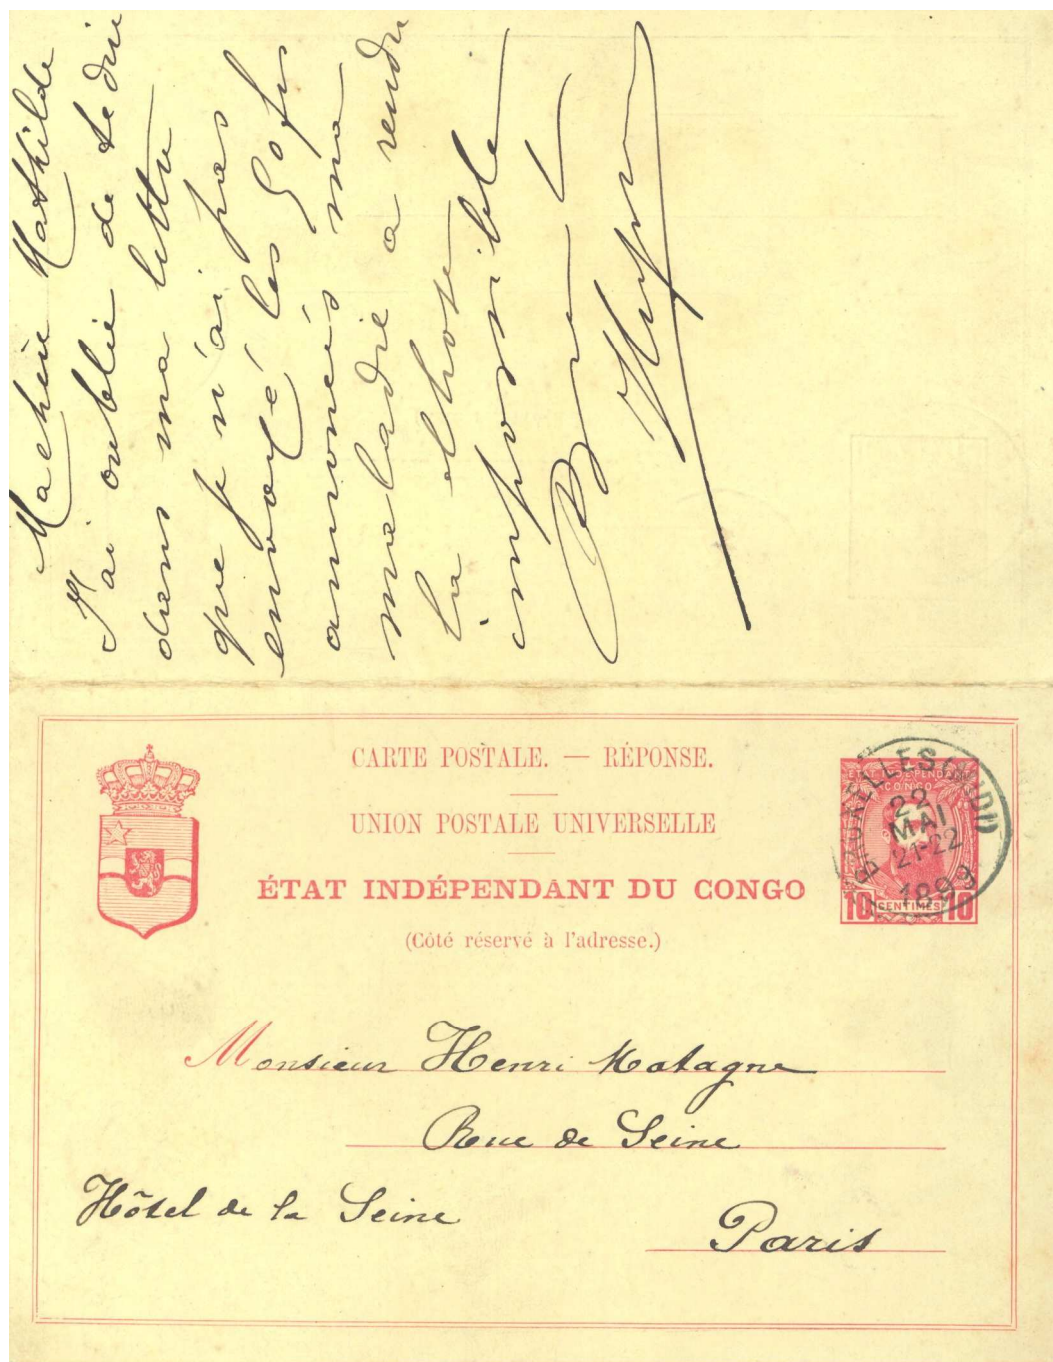 Ma chère Mathilde
J'ai oublié de te dire
dans ma lettre
que je n'ai pas
envoyé les 50 frs
annoncés ma
maladie a rendu
la chose
impossible
CARTE POSTALE. — RÉPONSE.
UNION POSTALE UNIVERSELLE
ÉTAT INDÉPENDANT DU CONGO
(Côté réservé à l'adresse.)
ÉTAT INDÉPENDANT
CONGO
10 CENTIMES 10
BRUXELLES (MIDI)
22
MAI
21-22
1899
Monsieur Henri Matagne
Rue de Seine
Hôtel de la Seine
Paris